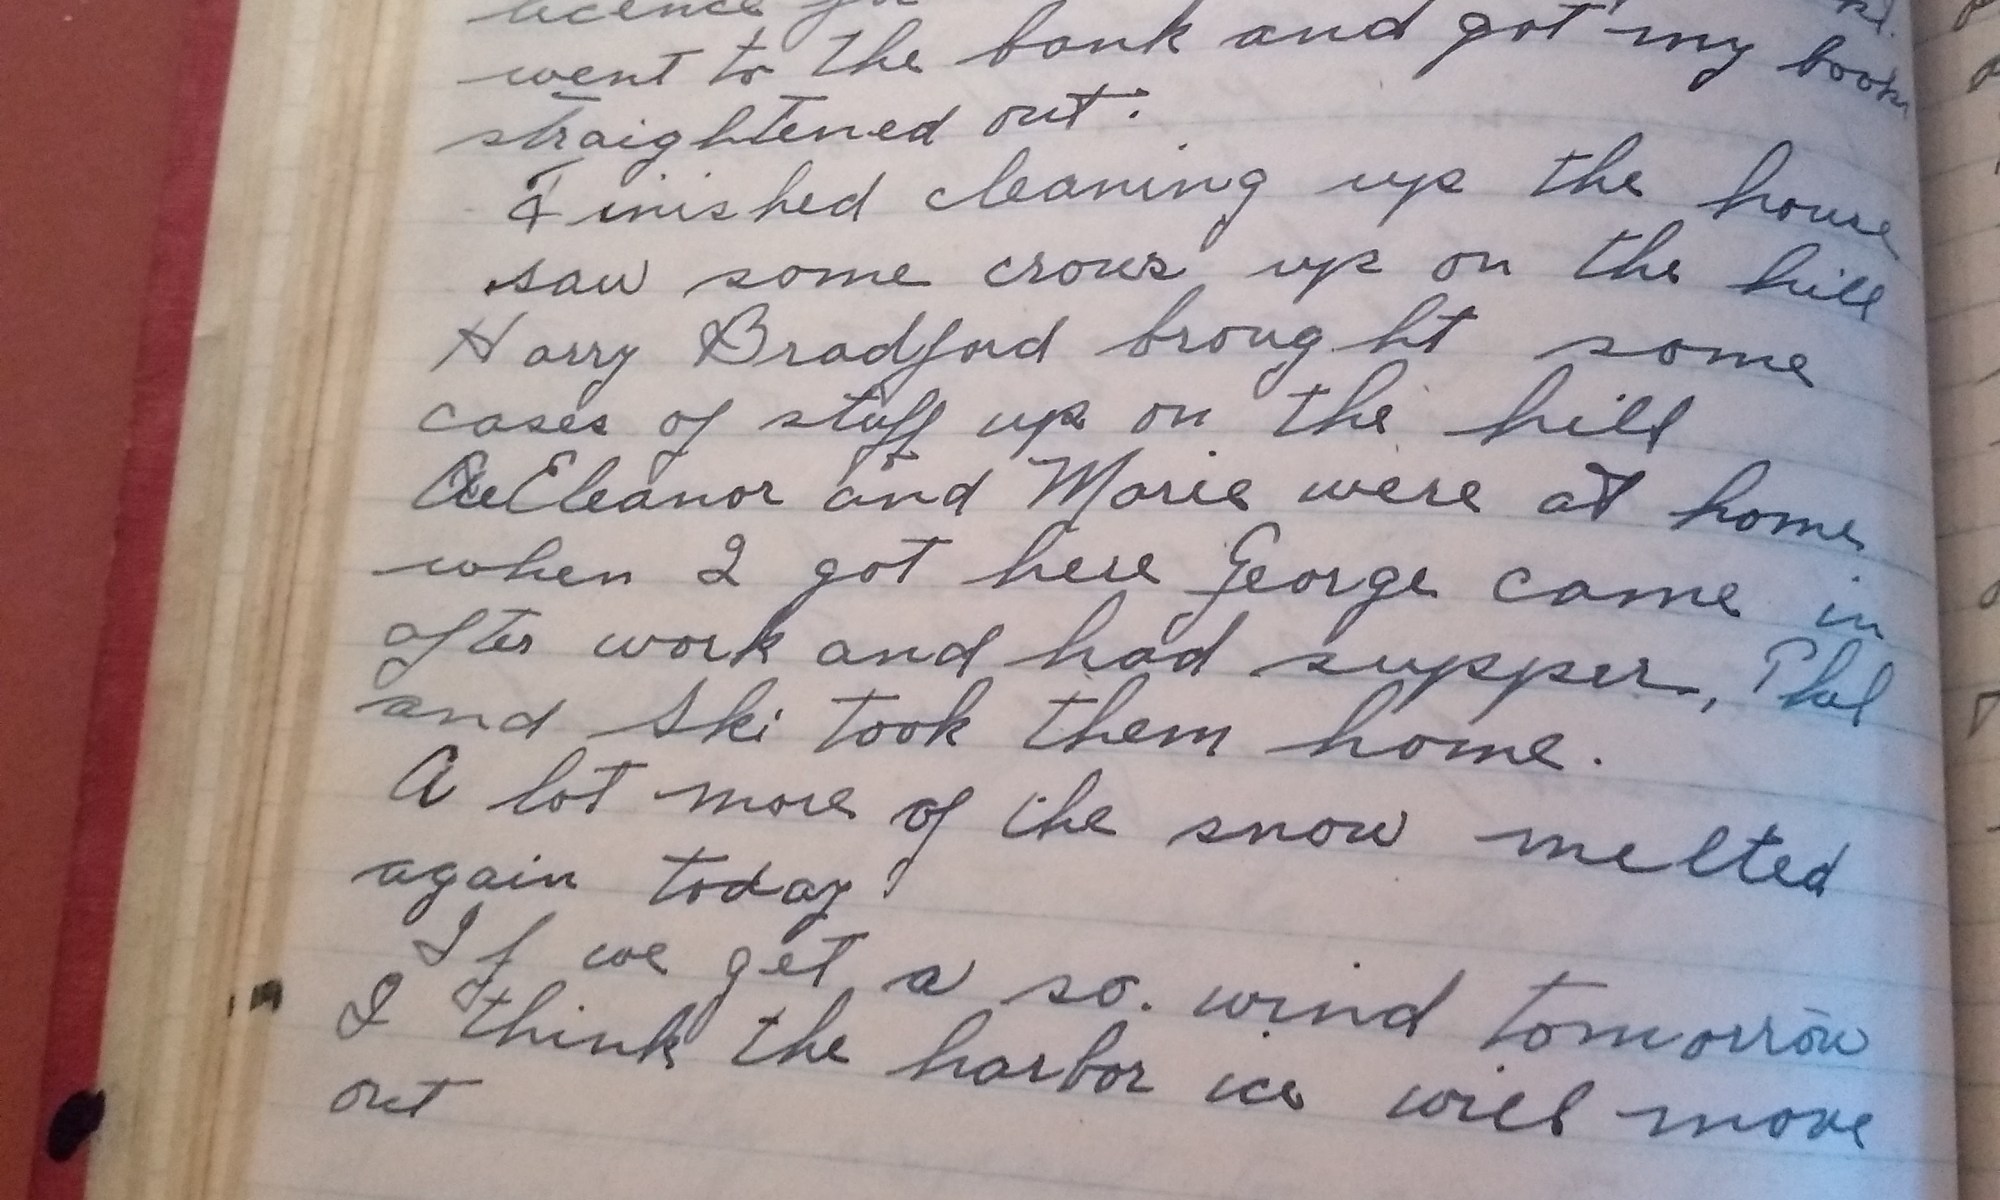 licence for
went to the bank and got my book
straightened out.
Finished cleaning up the house
saw some crows up on the hill
Harry Bradford brought some
cases of stuff up on the hill
Eleanor and Marie were at home
when I got here George came in
after work and had supper, Phil
and Ski took them home.
A lot more of the snow melted
again today.
If we get a so. wind tomorrow
I think the harbor ice will move
out